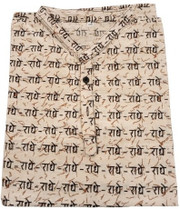 राधे - राधे - राधे - राधे
राधे - राधे - राधे - राधे
राधे - राधे - राधे - राधे
राधे - राधे - राधे - राधे
राधे - राधे - राधे - राधे
राधे - राधे - राधे - राधे
राधे - राधे - राधे - राधे
राधे - राधे - राधे - राधे